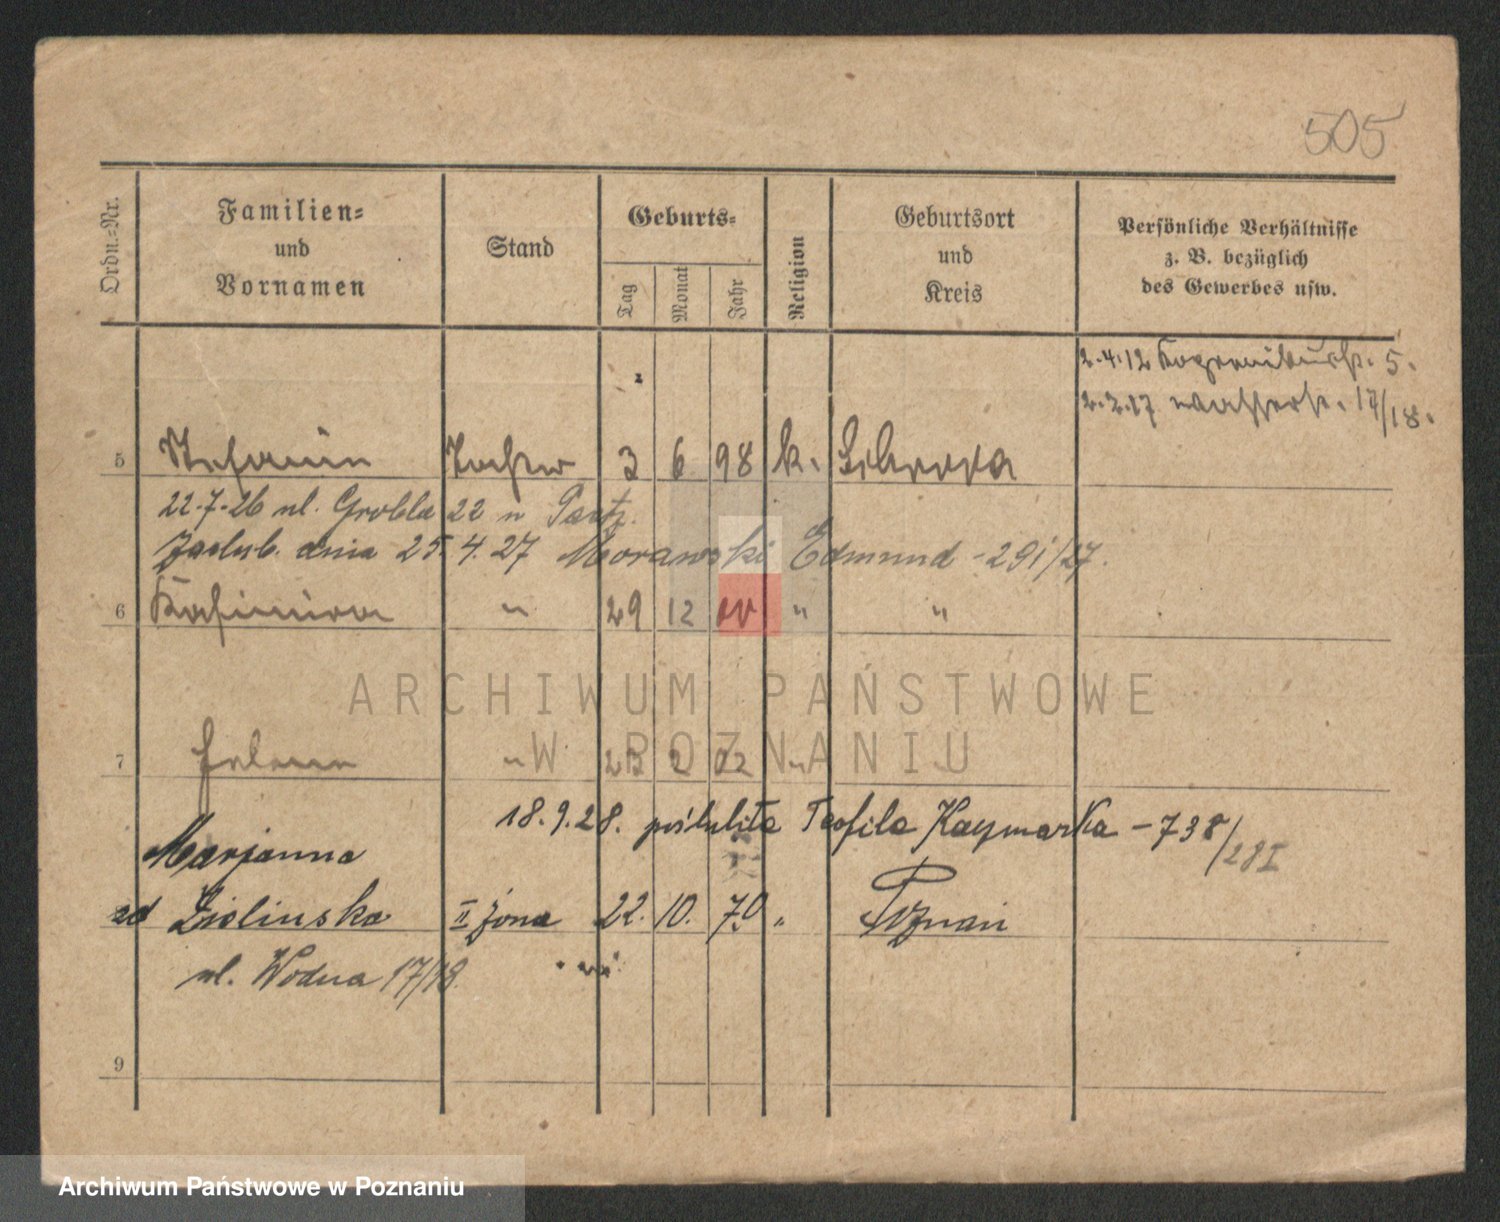 505
Ordn.-Nr.
Familien-
und
Vornamen
Stand
Geburts-
Tag
Monat
Jahr
Religion
Geburtsort
und
Kreis
Persönliche Verhältnisse
z. B. bezüglich
des Gewerbes usw.
2.4.12 5.
2.2.17 Wasserstr. 17/18.
5 Stefanie Tochter 3 6 98 k.
22.7.26 ul. Grobla 22 u
Zaślub. dnia 25.4.27 Morawski Edmund - 291/27.
6 Kasimira " 29 12 " "
ARCHIWUM PAŃSTWOWE
W POZNANIU
7 Helene " 23 2 02 "
18.9.28. poślubita Teofila Kaymarka - 738/28 I
Marjanna
zd Zielinska II żona 22. 10. 70 " Poznań
ul. Wodna 17/18.
9
Archiwum Państwowe w Poznaniu